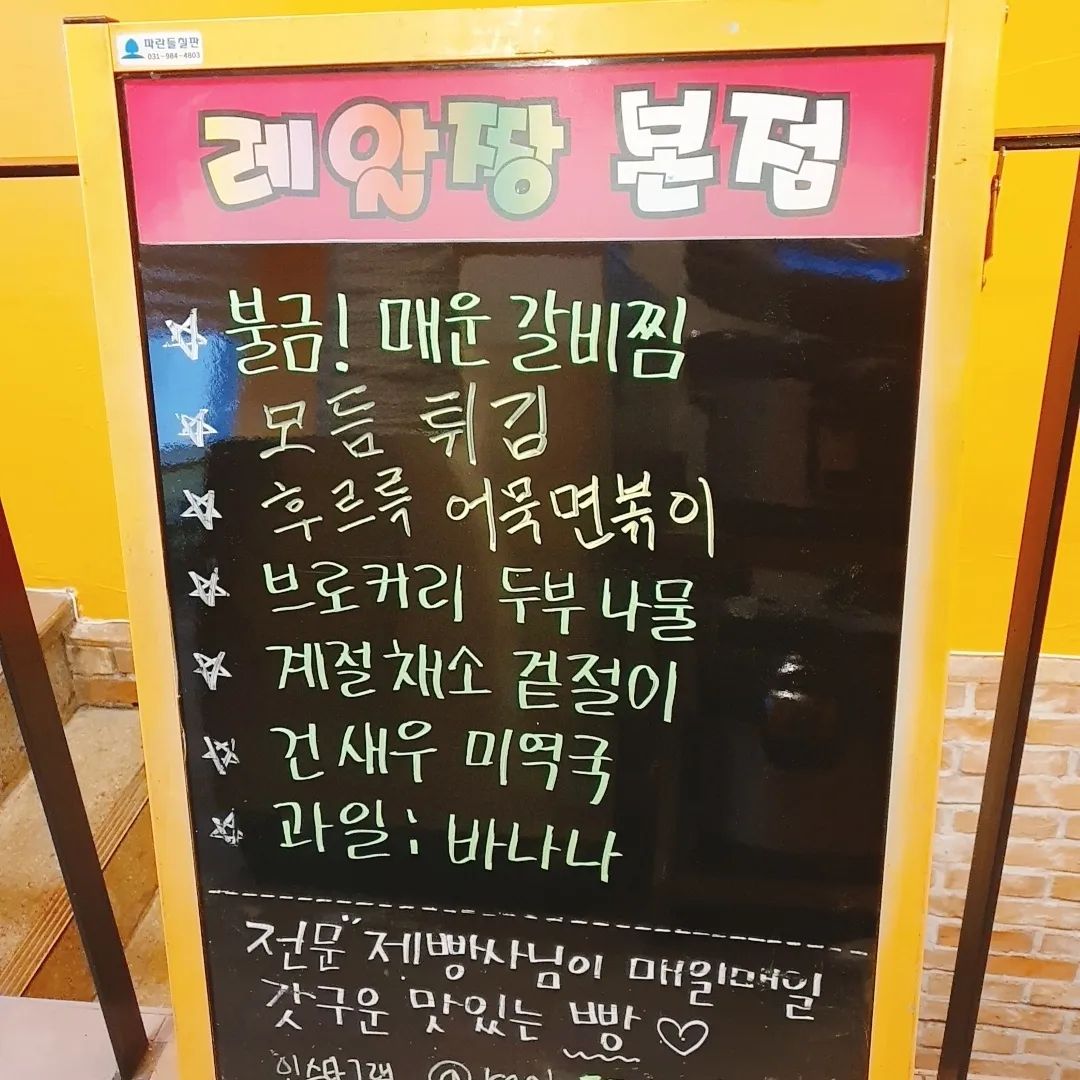 파란들칠판
031-984-4803
레알짱 본점
불금! 매운 갈비찜
모듬 튀김
후르륵 어묵면볶이
브로커리 두부 나물
계절채소 겉절이
건새우 미역국
과일: 바나나
전문 제빵사님이 매일매일
갓구운 맛있는 빵 ♡